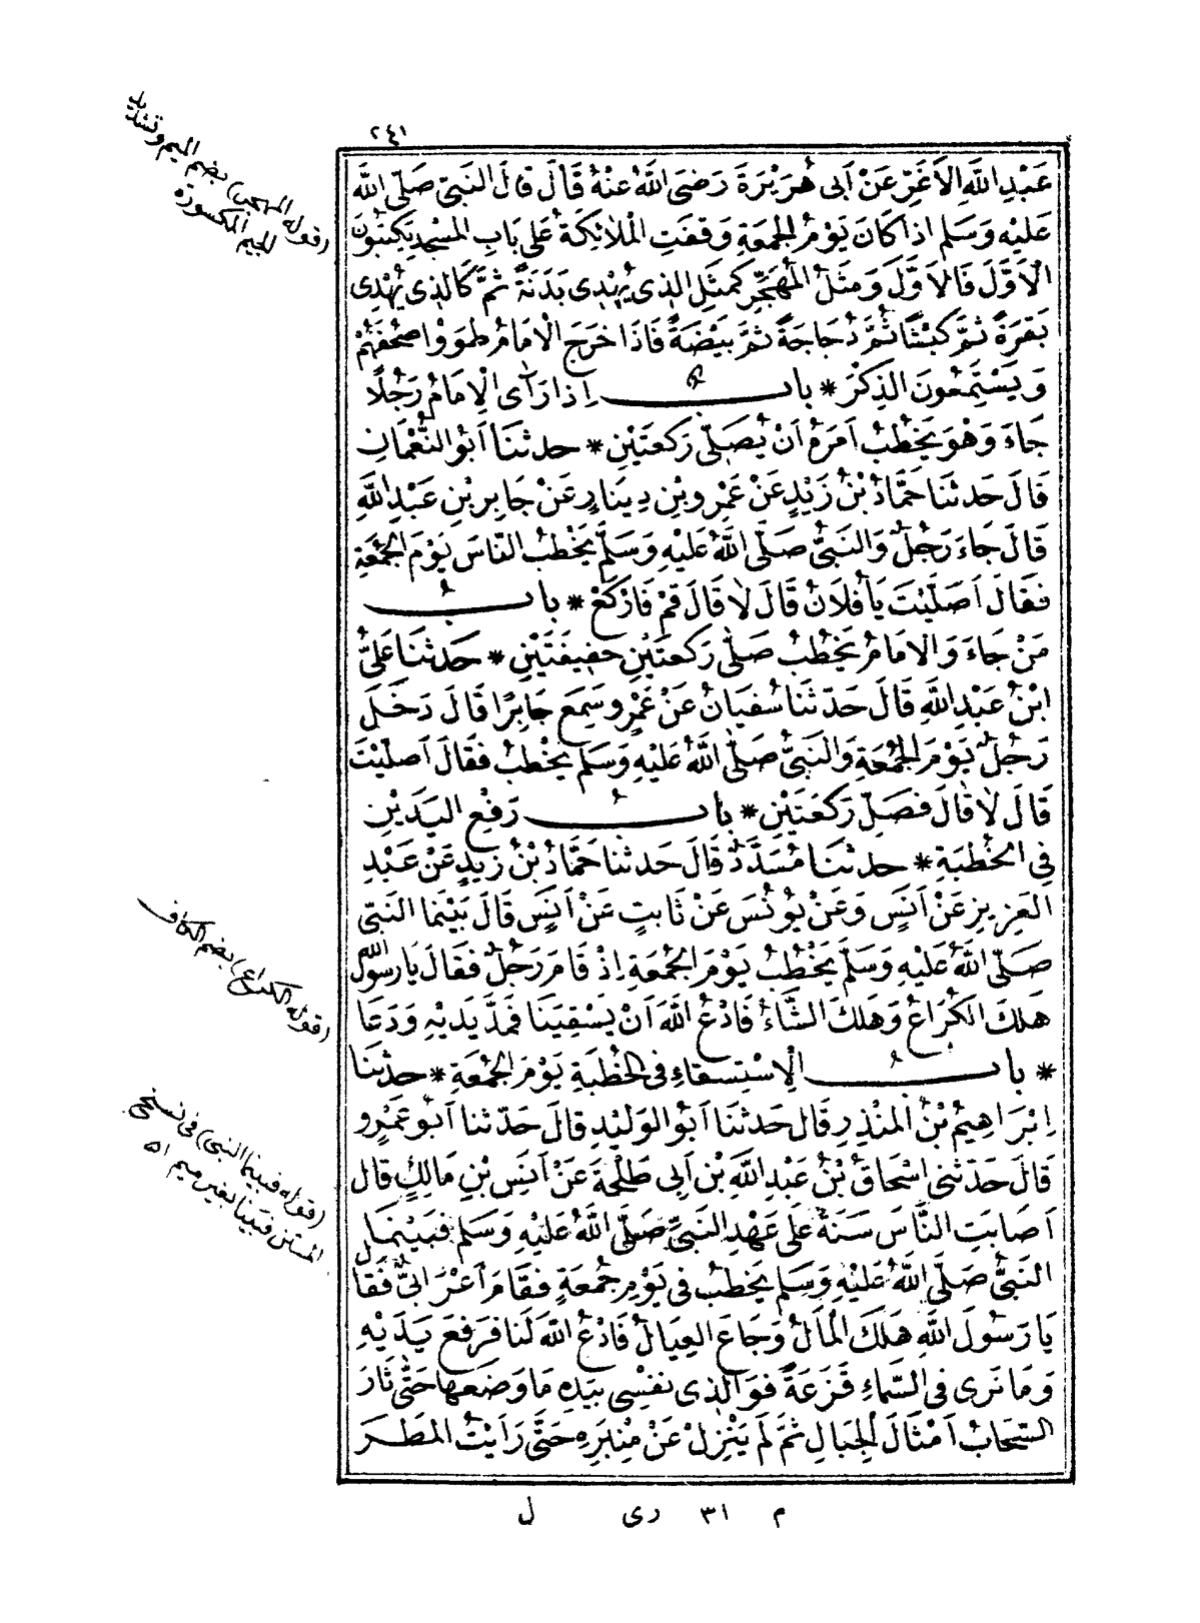 ٢٤١
عَبْدِ اللَّهِ الْاَغَرِّ عَنْ اَبِى هُرَيْرَةَ رَضِىَ اللَّهُ عَنْهُ قَالَ قَالَ النَّبِىُّ صَلَّى اللَّهُ
عَلَيْهِ وَسَلَّمَ اِذَا كَانَ يَوْمُ الْجُمُعَةِ وَقَفَتِ الْمَلَائِكَةُ عَلَى بَابِ الْمَسْجِدِ يَكْتُبُونَ
الْاَوَّلَ فَالْاَوَّلَ وَمَثَلُ الْمُهَجِّرِ كَمَثَلِ الَّذِى يُهْدِى بَدَنَةً ثُمَّ كَالَّذِى يُهْدِى
بَقَرَةً ثُمَّ كَبْشًا ثُمَّ دُجَاجَةً ثُمَّ بَيْضَةً فَاِذَا خَرَجَ الْاِمَامُ طَوَوْا صُحُفَهُمْ
وَيَسْتَمِعُونَ الذِّكْرَ * بابٌ اِذَا رَأَى الْاِمَامُ رَجُلًا
جَاءَ وَهْوَ يَخْطُبُ اَمَرَهُ اَنْ يُصَلِّىَ رَكْعَتَيْنِ * حدثنا اَبُو النُّعْمَانِ
قَالَ حَدَثَنَا حَمَّادُ بْنُ زَيْدٍ عَنْ عَمْرِو بْنِ دِينَارٍ عَنْ جَابِرِ بْنِ عَبْدِ اللَّهِ
قَالَ جَاءَ رَجُلٌ وَالنَّبِىُّ صَلَّى اللَّهُ عَلَيْهِ وَسَلَّمَ يَخْطُبُ النَّاسَ يَوْمَ الْجُمُعَةِ
فَقَالَ اَصَلَّيْتَ يَا فُلَانُ قَالَ لَا قَالَ قُمْ فَارْكَعْ * بابُ
مَنْ جَاءَ وَالْاِمَامُ يَخْطُبُ صَلَّى رَكْعَتَيْنِ خَفِيفَتَيْنِ * حَدثنا عَلِىُّ
ابْنُ عَبْدِ اللَّهِ قَالَ حَدّثَنَا سُفْيَانُ عَنْ عَمْرٍو سَمِعَ جَابِرًا قَالَ دَخَلَ
رَجُلٌ يَوْمَ الْجُمُعَةِ وَالنَّبِىُّ صَلَّى اللَّهُ عَلَيْهِ وَسَلَّمَ يَخْطُبُ فَقَالَ اَصَلَّيْتَ
قَالَ لَا قَالَ فَصَلِّ رَكْعَتَيْنِ * بابُ رَفْعِ الْيَدَيْنِ
فِى الْخُطْبَةِ * حدثنا مُسَدَّدٌ قَالَ حَدثنا حَمَّادُ بْنُ زَيْدٍ عَنْ عَبْدِ
الْعَزِيزِ عَنْ اَنَسٍ وَعَنْ يُونُسَ عَنْ ثَابِتٍ عَنْ اَنَسٍ قَالَ بَيْنَمَا النَّبِىُّ
صَلَّى اللَّهُ عَلَيْهِ وَسَلَّمَ يَخْطُبُ يَوْمَ الْجُمُعَةِ اِذْ قَامَ رَجُلٌ فَقَالَ يَا رَسُولَ اللَّهِ
هَلَكَ الْكُرَاعُ وَهَلَكَ الشَّاءُ فَادْعُ اللَّهَ اَنْ يَسْقِيَنَا فَمَدَّ يَدَيْهِ وَدَعَا
* بابُ الْاِسْتِسْقَاءِ فِى الْخُطْبَةِ يَوْمَ الْجُمُعَةِ * حدثنا
اِبْرَاهِيمُ بْنُ الْمُنْذِرِ قَالَ حَدثَنَا اَبُو الْوَلِيْدِ قَالَ حَدّثنا اَبُو عَمْرٍو
قَالَ حَدَثَنِى اِسْحَاقُ بْنُ عَبْدِ اللَّهِ بْنِ اَبِى طَلْحَةَ عَنْ اَنَسِ بْنِ مَالِكٍ قَالَ
اَصَابَتِ النَّاسَ سَنَةٌ عَلَى عَهْدِ النَّبِىِّ صَلَّى اللَّهُ عَلَيْهِ وَسَلَّمَ فَبَيْنَمَا
النَّبِىُّ صَلَّى اللَّهُ عَلَيْهِ وَسَلَّمَ يَخْطُبُ فِى يَوْمِ جُمُعَةٍ فَقَامَ اَعْرَابِىٌّ فَقَالَ
يَا رَسُولَ اللَّهِ هَلَكَ الْمَالُ وَجَاعَ الْعِيَالُ فَادْعُ اللَّهَ لَنَا فَرَفَعَ يَدَيْهِ
وَمَا نَرَى فِى السَّمَاءِ قَزَعَةً فَوَالَّذِى نَفْسِى بِيَدِهِ مَا وَضَعَهَا حَتَّى ثَارَ
السَّحَابُ اَمْثَالَ الْجِبَالِ ثُمَّ لَمْ يَنْزِلْ عَنْ مِنْبَرِهِ حَتَّى رَاَيْتُ الْمَطَرَ
(قوله المهجر) بضم الميم وتشديد
الجيم المكسورة
(قوله الكراع) بضم الكاف
(قوله فبينما النبى) فى نسخة
المتن فبينا بغير ميم اه
م ٣١ رى ل